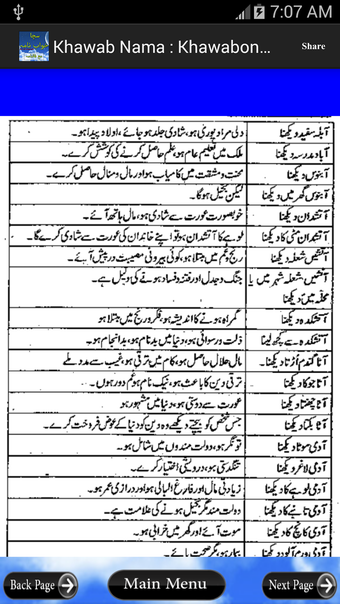 7:07 AM
Khawab Nama : Khawabon… Share
آبلہ سفید دیکھنا دلی مراد پوری ہو، شادی جلد ہو جائے، اولاد پیدا ہو۔
آباد مدرسہ دیکھنا ملک میں تعلیم عام ہو، علم حاصل کرنے کی کوشش کرے۔
آبنوس دیکھنا محنت و مشقت میں کامیاب ہو اور مال و منال حاصل کرے۔
آبنوس گھر میں دیکھنا لیکن بخیل ہوگا۔
آتشدان دیکھنا خوبصورت عورت سے شادی ہو، مال ہاتھ آئے۔
آتشدان مٹی کا دیکھنا لوہے کا آتشدان ہو تو اپنے خاندان کی عورت سے شادی کرے گا۔
آتشیں شعلہ دیکھنا رنج و غم میں مبتلا ہو، کوئی بیرونی مصیبت درپیش آئے۔
آتشیں شعلہ شہر میں یا جنگ و جدل اور فتنہ و فساد ہونے کی دلیل ہے۔
محلہ میں دیکھنا
آتشکدہ دیکھنا گمراہ ہونے کا اندیشہ ہو، فکر و رنج میں مبتلا ہو
آتشکدہ سے کچھ لینا ذلت و رسوائی ہو، دنیا میں بدنام ہو، بد انجام ہو۔
آٹا گندم اڑتا دیکھنا۔ مال حلال حاصل ہو، کام میں ترقی ہو، غیب سے مدد ملے
آٹا جو کا دیکھنا ترقی دین کا باعث ہو، نیک نام ہو، غم دور ہوں۔
آٹا چھنتا دیکھنا عورت سے دوستی ہو، دنیا میں مشہور ہو
آٹا بکتا دیکھنا جس شخص کو بیچتے دیکھے وہ دین کو دنیا کے عوض فروخت کرے۔
آدمی موٹا دیکھنا تونگر ہو، دولت مندوں میں شامل ہو۔
آدمی لاغر دیکھنا تنگدستی ہو، درویشی اختیار کرے۔
آدمی لوہے کا دیکھنا زیادتی مال اور فارغ البالی ہو اور درازی عمر ہو۔
آدمی تانبے کا دیکھنا دولت مند مگر بخیل ہونے کی علامت ہے۔
آدمی کانچ کا دیکھنا موت آئے اور گھر میں خرابی ہو۔
آدمی ورم آلود دیکھنا بیمار ہو، مگر صحت پائے۔
Back Page Main Menu Next Page